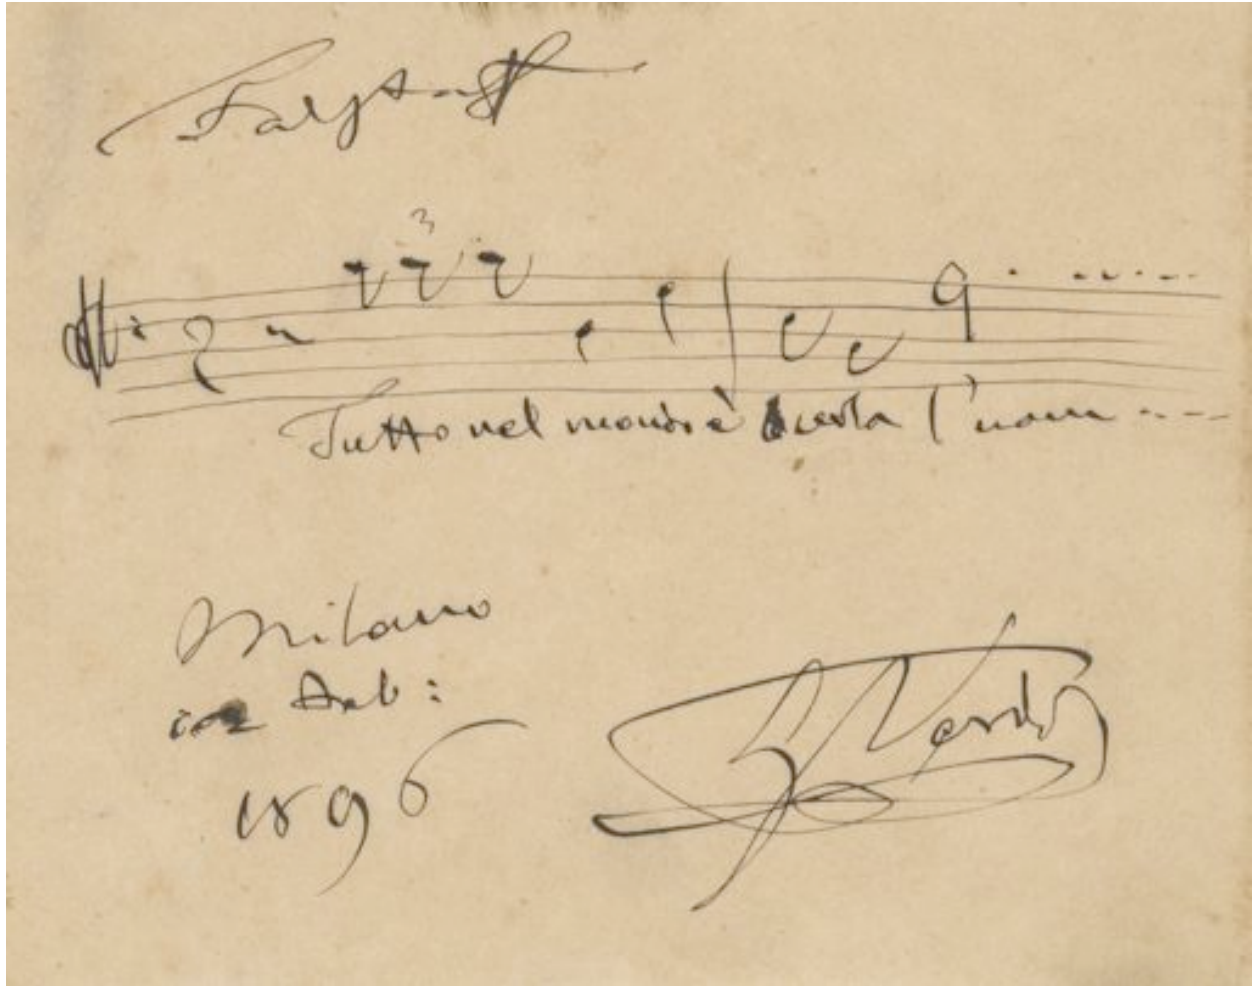 Falstaff
3
Tutto nel mondo è burla l'uom ----
Milano
Feb:
1896
G Verdi